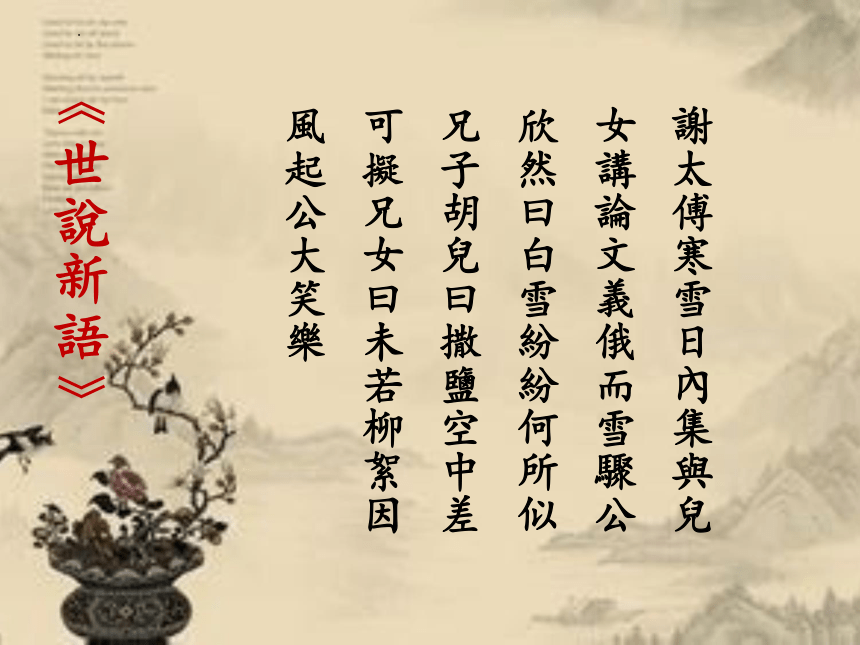 謝太傅寒雪日內集與兒
女講論文義俄而雪驟公
欣然曰白雪紛紛何所似
兄子胡兒曰撒鹽空中差
可擬兄女曰未若柳絮因
風起公大笑樂
《世說新語》